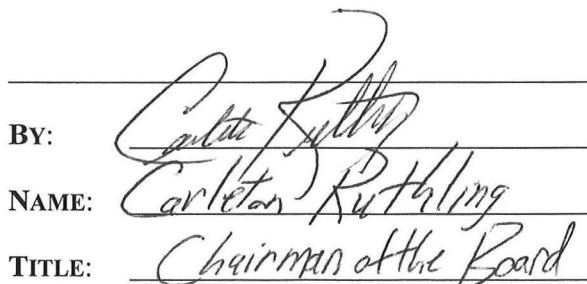 BY: Carleton Ruthling
NAME: Carleton Ruthling
TITLE: Chairman of the Board